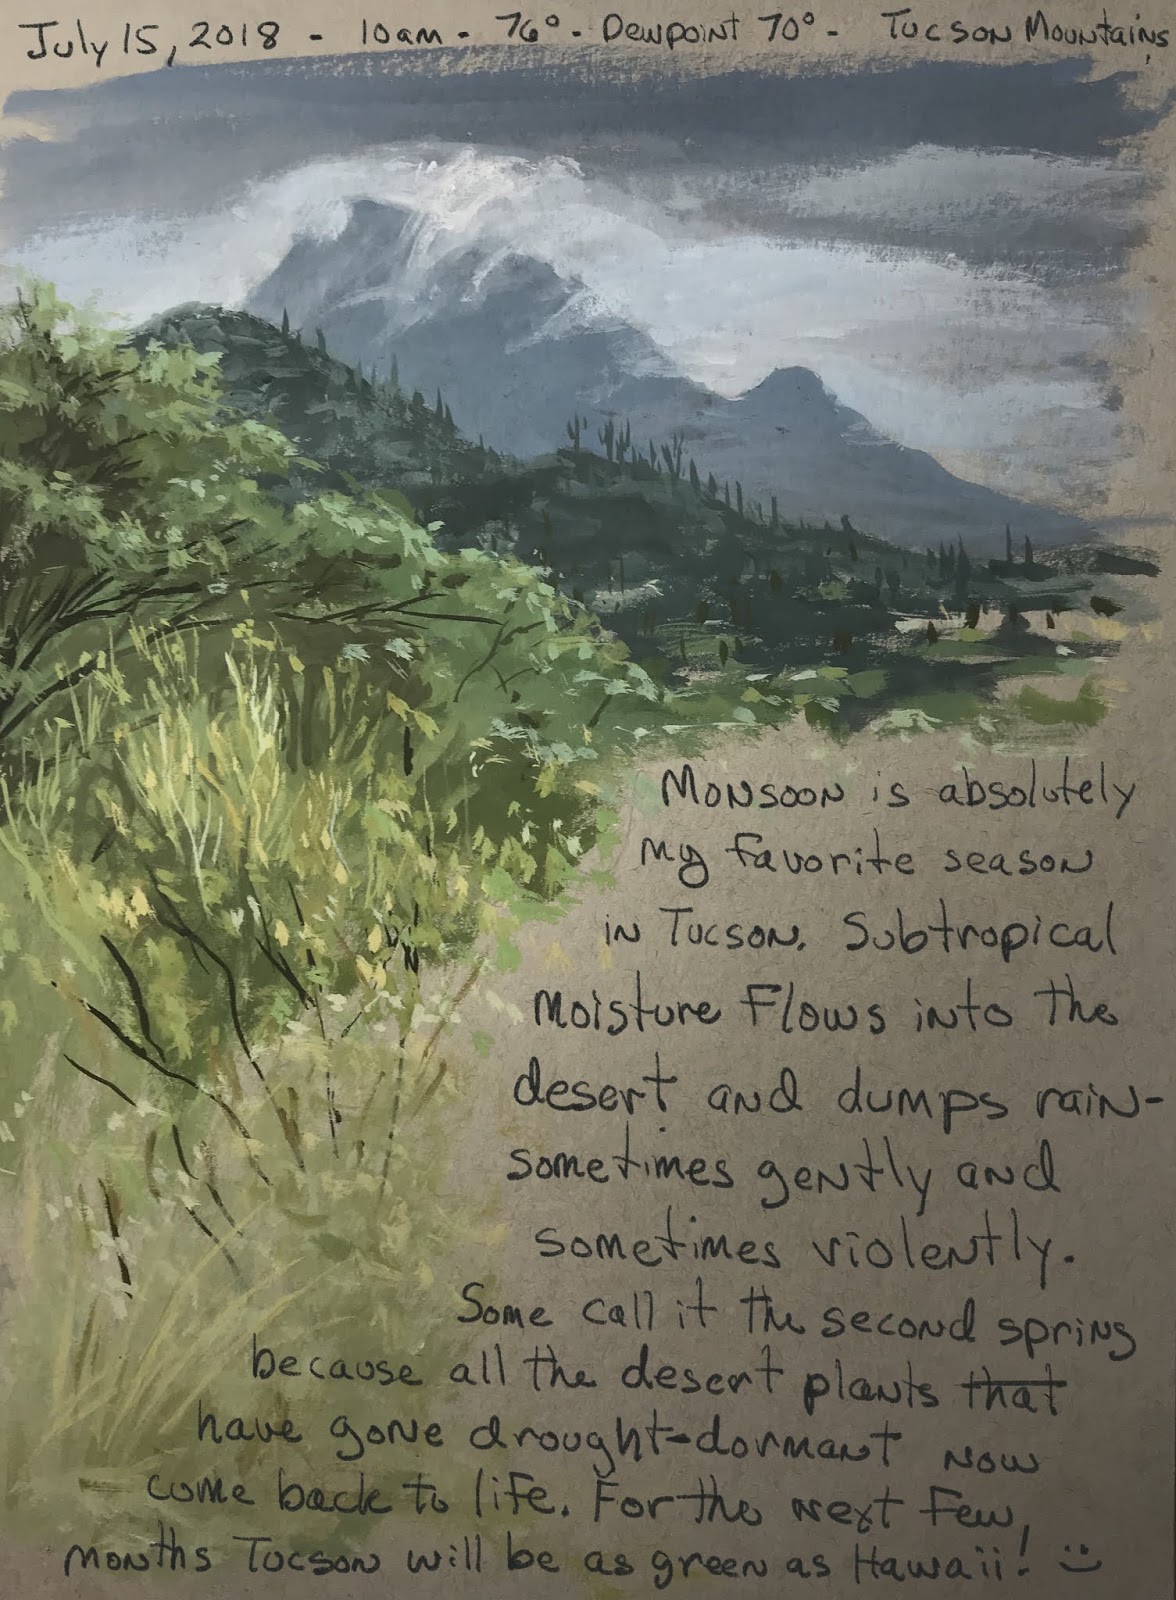 July 15, 2018 - 10am - 76° - Dewpoint 70° - Tucson Mountains
Monsoon is absolutely
my favorite season
in Tucson. Subtropical
moisture flows into the
desert and dumps rain-
sometimes gently and
sometimes violently.
Some call it the second spring
because all the desert plants that
have gone drought-dormant now
come back to life. For the next few,
months Tucson will be as green as Hawaii! :)